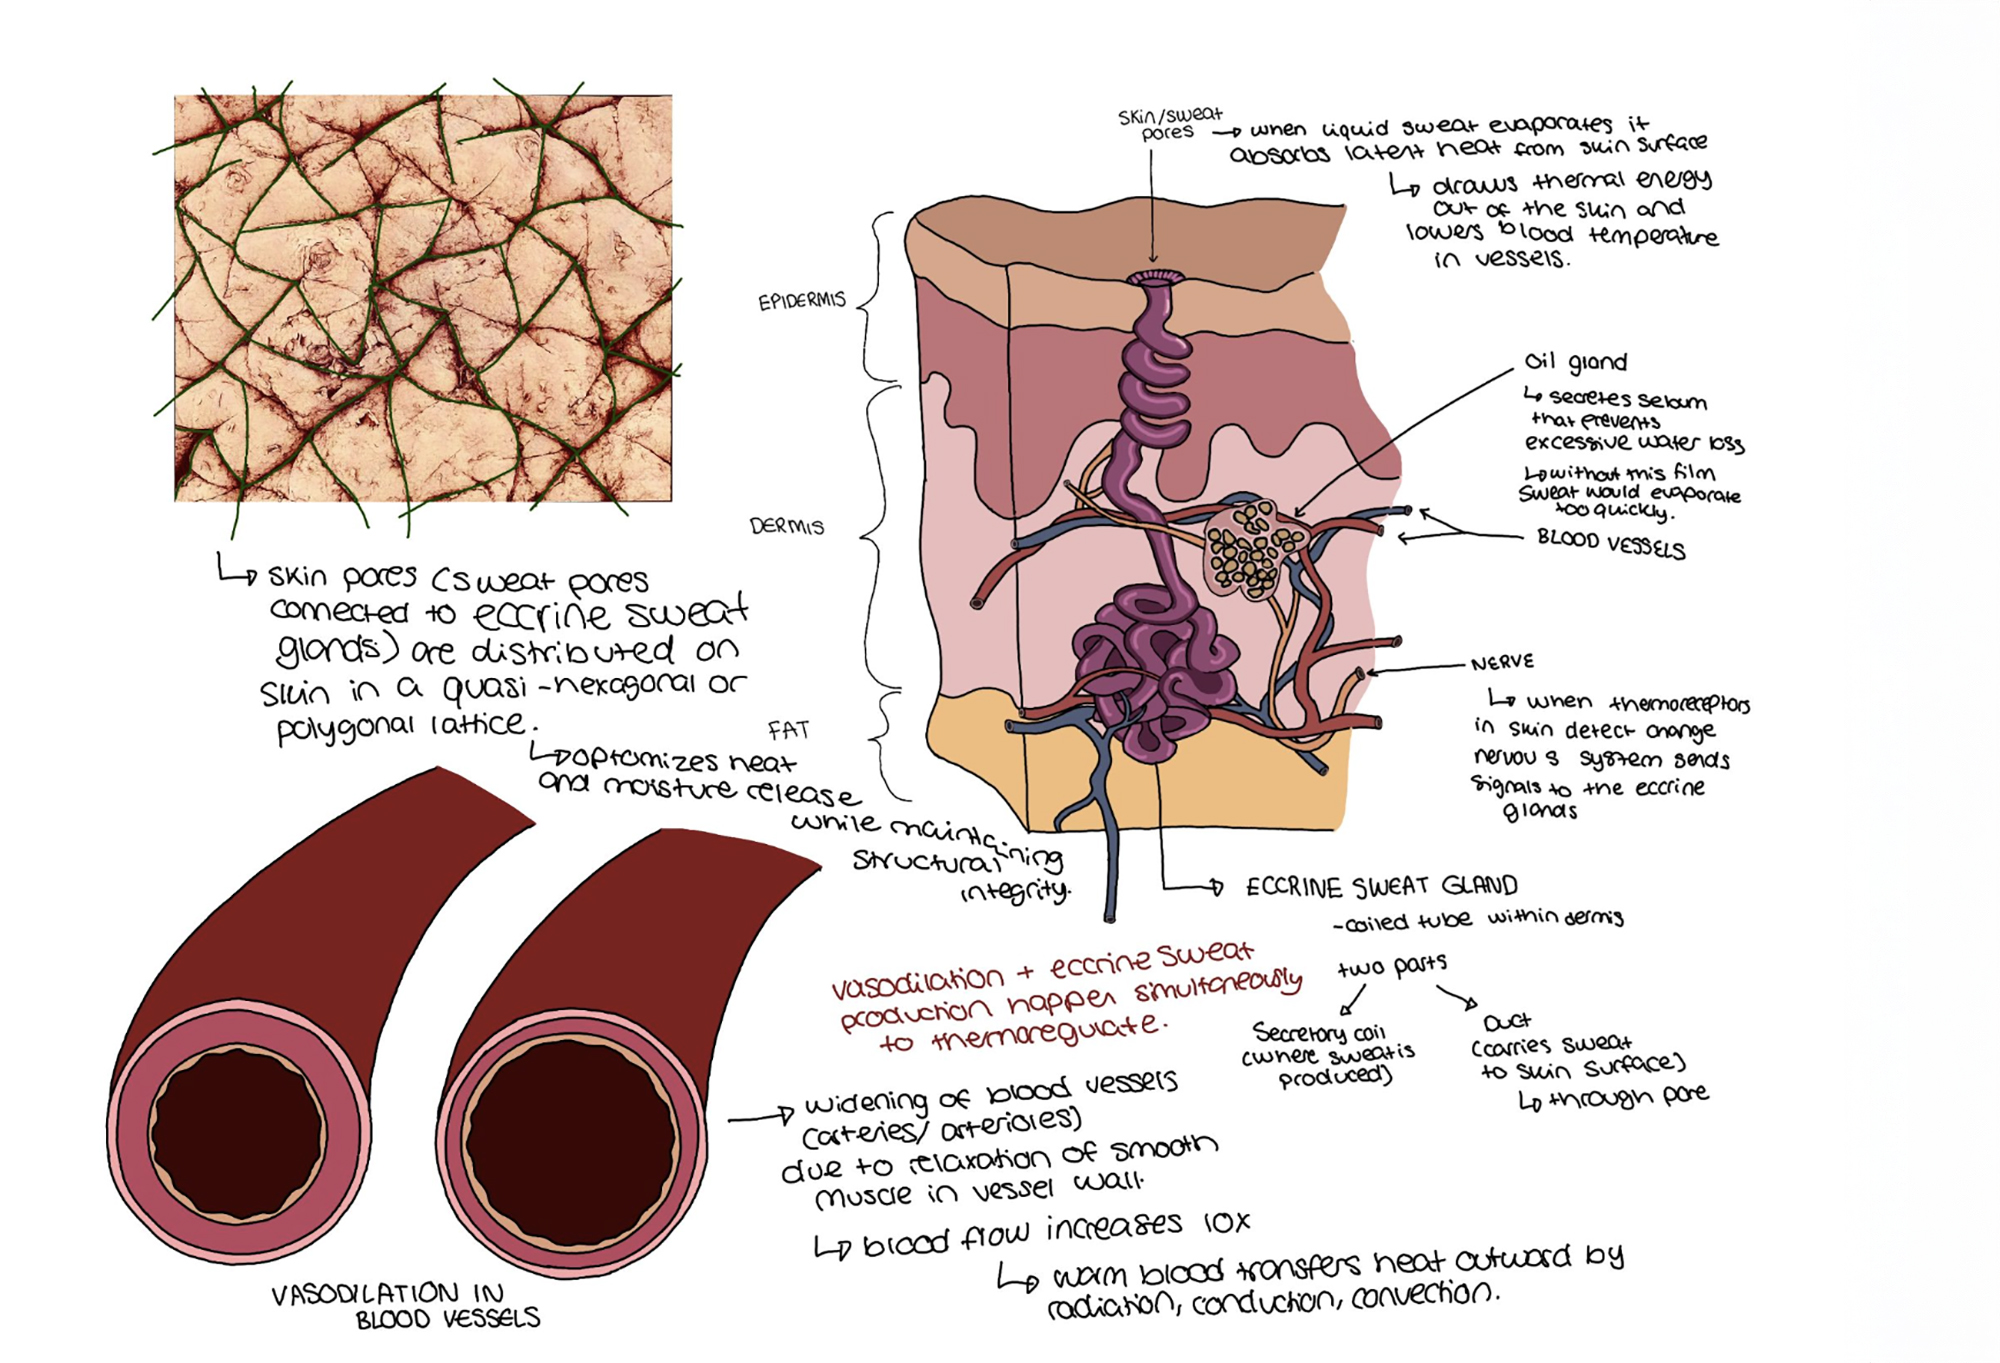 skin/sweat
pores → when liquid sweat evaporates it
absorbs latent heat from skin surface
↳ draws thermal energy
out of the skin and
lowers blood temperature
in vessels.
EPIDERMIS
DERMIS
FAT
Oil gland
↳ secretes sebum
that prevents
excessive water loss
↳ without this film
sweat would evaporate
too quickly.
BLOOD VESSELS
NERVE
↳ when thermoreceptors
in skin detect change
nervous system sends
signals to the eccrine
glands
↳ skin pores (sweat pores
connected to eccrine sweat
glands) are distributed on
skin in a quasi-hexagonal or
polygonal lattice.
↳ optomizes heat
and moisture release
while maintaining
structural
integrity.
ECCRINE SWEAT GLAND
-coiled tube within dermis
two parts
Secretory coil
(where sweat is
produced)
Duct
(carries sweat
to skin surface)
↳ through pore
vasodilation + eccrine sweat
production happen simultaneously
to thermoregulate.
→ widening of blood vessels
(arteries/ arterioles)
due to relaxation of smooth
muscle in vessel wall.
↳ blood flow increases 10x
↳ warm blood transfers heat outward by
radiation, conduction, convection.
VASODILATION IN
BLOOD VESSELS